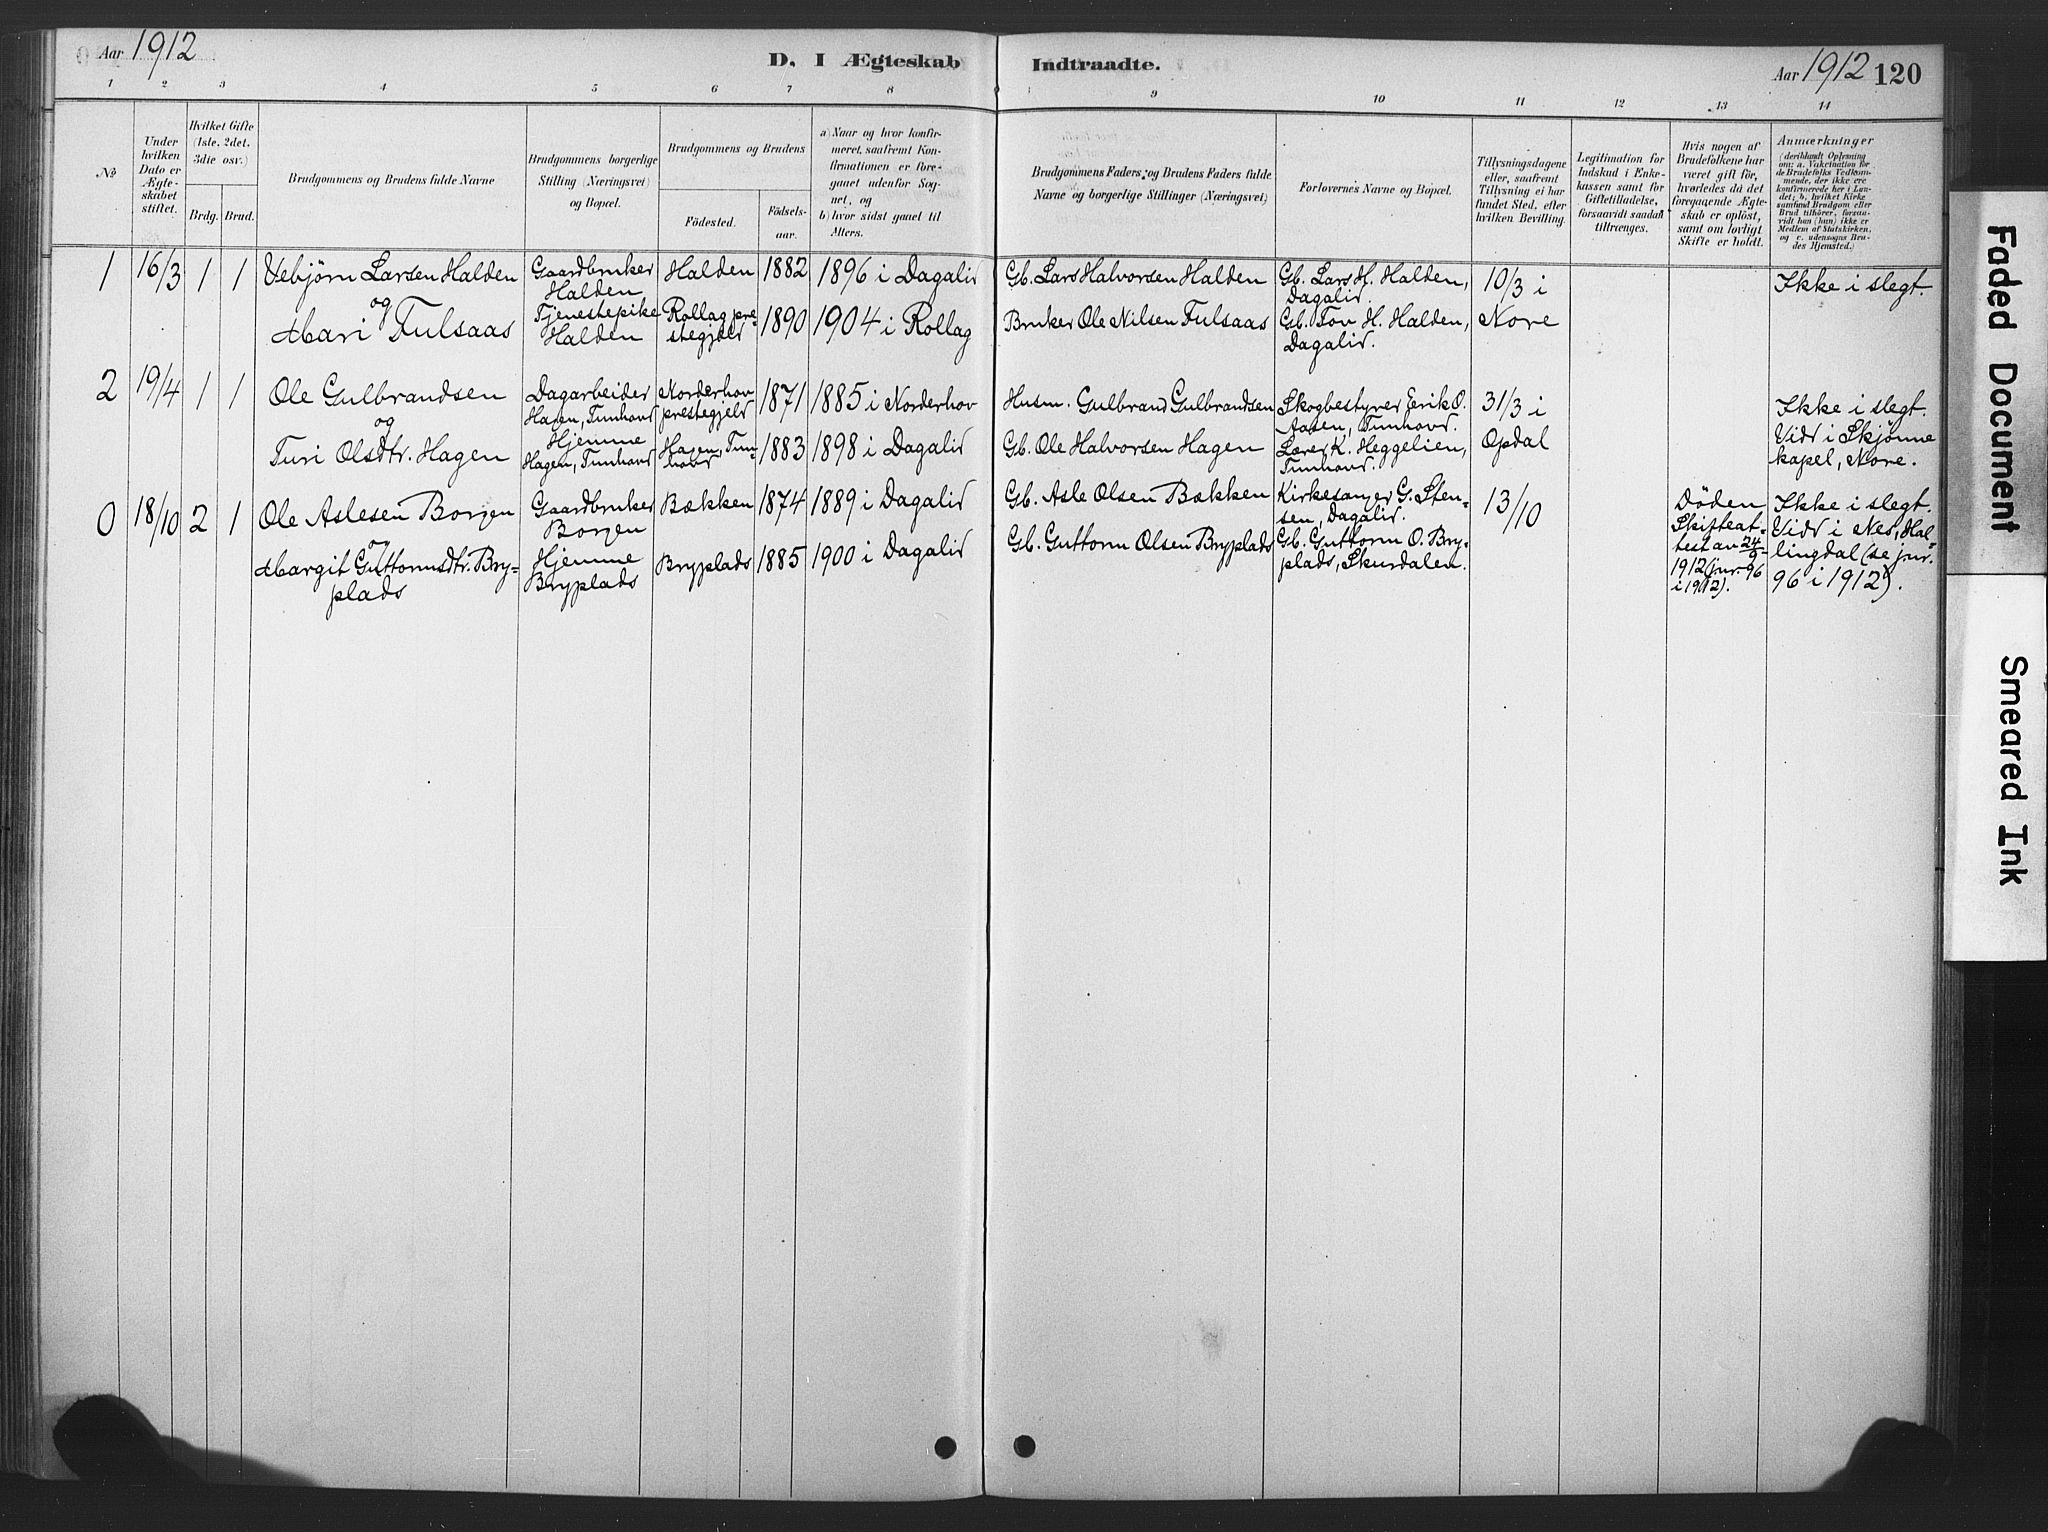 Aar 1912
D. I Ægteskab
Indtraadte.
Aar 1912 120
1 2 3 4 5 6 7 8 9 10 11 12 13 14
No
Under
hvilken
Dato er
Ægte-
skabet
stiftet.
Hvilket Gifte
(1ste, 2det,
3die osv.)
Brdg. Brud.
Brudgommens og Brudens fulde Navne
Brudgommens borgerlige
Stilling (Næringsvei)
og Bopæl.
Brudgommens og Brudens
Födested.
Födsels-
aar.
a) Naar og hvor konfir-
meret, saafremt Kon-
firmationen er fore-
gaaet udenfor Sog-
net, og
b) hvor sidst gaaet til
Alters.
Brudgommens Faders og Brudens Faders fulde
Navne og borgerlige Stillinger (Næringsvei)
Forlovernes Navne og Bopæl.
Tillysningsdagene
eller, saafremt
Tillysning ei har
fundet Sted, efter
hvilken Bevilling.
Legitimation for
Indskud i Enke-
kassen samt for
Giftetilladelse,
forsaavidt saadan
tiltrænges.
Hvis nogen af
Brudefolkene har
været gift för,
hvorledes da det
foregaaende Ægte-
skab er oplöst,
samt om lovligt
Skifte er holdt.
Anmærkninger
(deriblandt Oplysning
om: a. Vakcination for
de Brudefolks Vedkom-
mende, der ikke ere
konfirmerede her i Lan-
det; b. hvilket Kirke
samfund Brudgom eller
Brud tilhører, forsaa-
vidt han (hun) ikke er
Medlem af Statskirken,
og c. udensogns Bru-
des Hjemsted.)
1 16/3 1 1
Vebjörn Larsen Halden
og
Mari Fulsaas
Gaardbruker
Halden
Tjenestepike
Halden
Halden
Rollag pre-
stegjeld
1882
1890
1896 i Dagalid
1904 i Rollag
Gb. Lars Halvorsen Halden
Bruker Ole Nilsen Fulsaas
Gb. Lars H. Halden,
Dagalid.
Gb. Tov H. Halden,
Dagalid.
10/3 i
Nore
Ikke i slegt.
2 19/4 1 1
Ole Gulbrandsen
og
Turi Olsdtr. Hagen
Dagarbeider
Hagen, Tunhovd
Hjemme
Hagen, Tunhovd
Norderhov
prestegjeld
Hagen, Tun-
hovd
1871
1883
1885 i Norderhov
1898 i Dagalid
Husm. Gulbrand Gulbrandsen
Gb. Ole Halvorsen Hagen
Skogbestyrer Erik O.
Aasen, Tunhovd.
Lærer K. Heggelien,
Tunhovd.
31/3 i
Opdal
Ikke i slegt.
Vidd i Skjönne
kapel, Nore.
0 18/10 2 1
Ole Aslesen Borgen
og
Margit Guttormsdtr. Bry-
plads
Gaardbruker
Borgen
Hjemme
Bryplads
Bækken
Bryplads
1874
1885
1889 i Dagalid
1900 i Dagalid
Gb. Asle Olsen Bækken
Gb. Guttorm Olsen Bryplads
Kirkesanger G. Sten-
sen, Dagalid.
Gb. Guttorm O. Bry-
plads, Skurdalen.
13/10
Döden
Skifteat-
test av 24/9
1912 (jnr. 96
i 1912).
Ikke i slegt.
Vidd i Nes, Hal-
lingdal (se jnr.
96 i 1912).
Faded Document
Smeared Ink